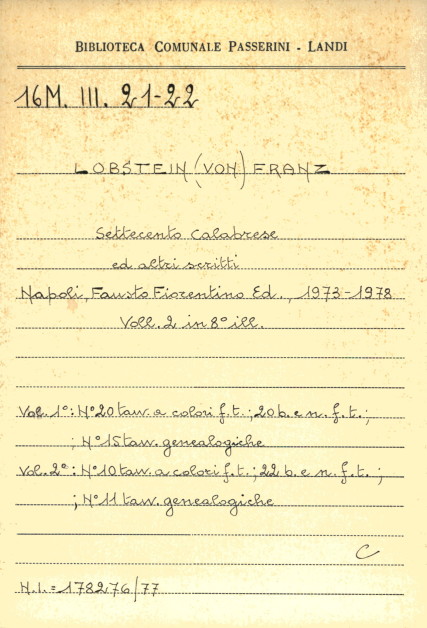 BIBLIOTECA COMUNALE PASSERINI - LANDI
16M. III. 21-22
LOBSTEIN (VON) FRANZ
Settecento Calabrese
ed altri scritti
Napoli, Fausto Fiorentino Ed., 1973-1978
Voll. 2 in 8° ill.
Vol. 1°: N° 20 tav. a colori f.t.; 20 b. e n. f.t.;
; N° 15 tav. genealogiche
Vol. 2°: N° 10 tav. a colori f.t.; 22 b. e n. f.t. ;
; N° 11 tav. genealogiche
C
N.I. = 178276/77